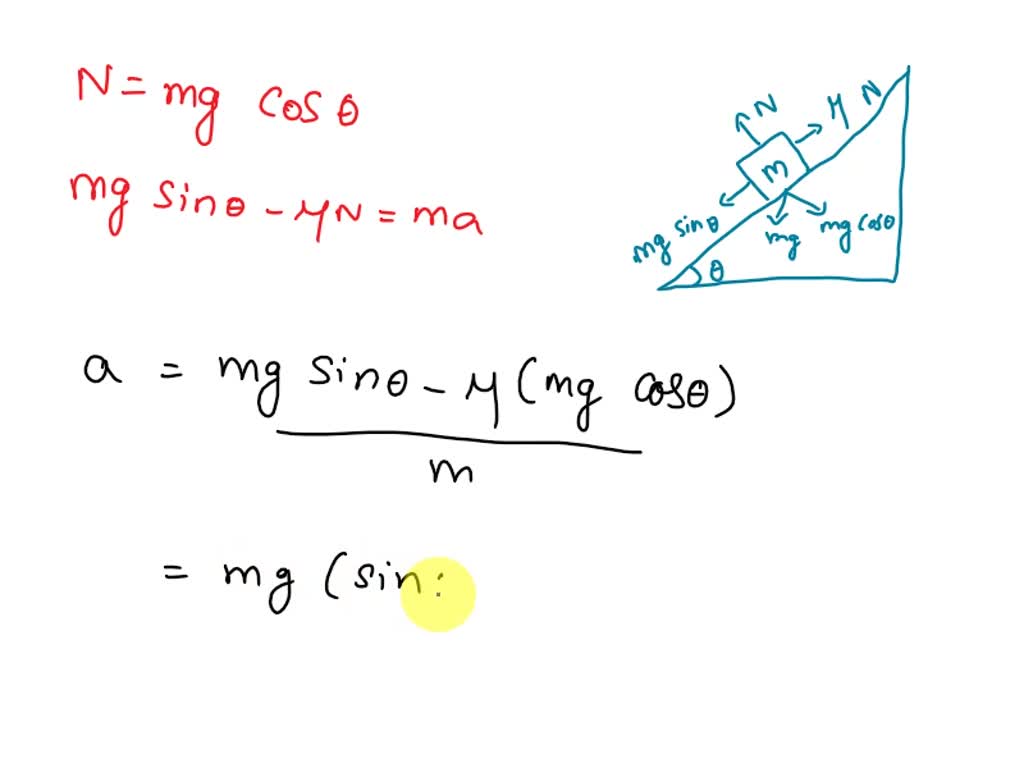 N = mg cos θ
mg sinθ - μN = ma
N
μ N
m
mg sinθ
mg
mg cosθ
θ
a = mg sinθ - μ (mg cosθ)
m
= mg (sin